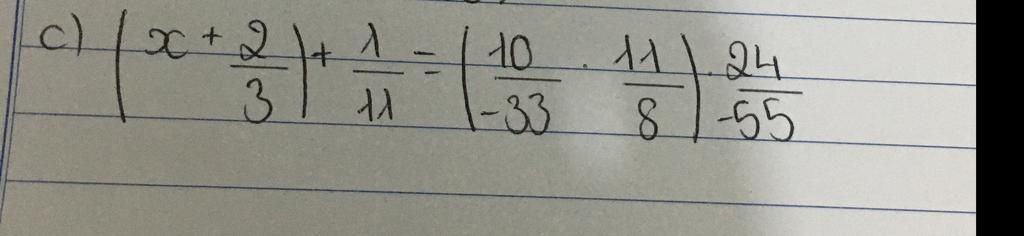 c) (x + 2/3) + 1/11 = (10/-33 . 11/8) . 24/-55